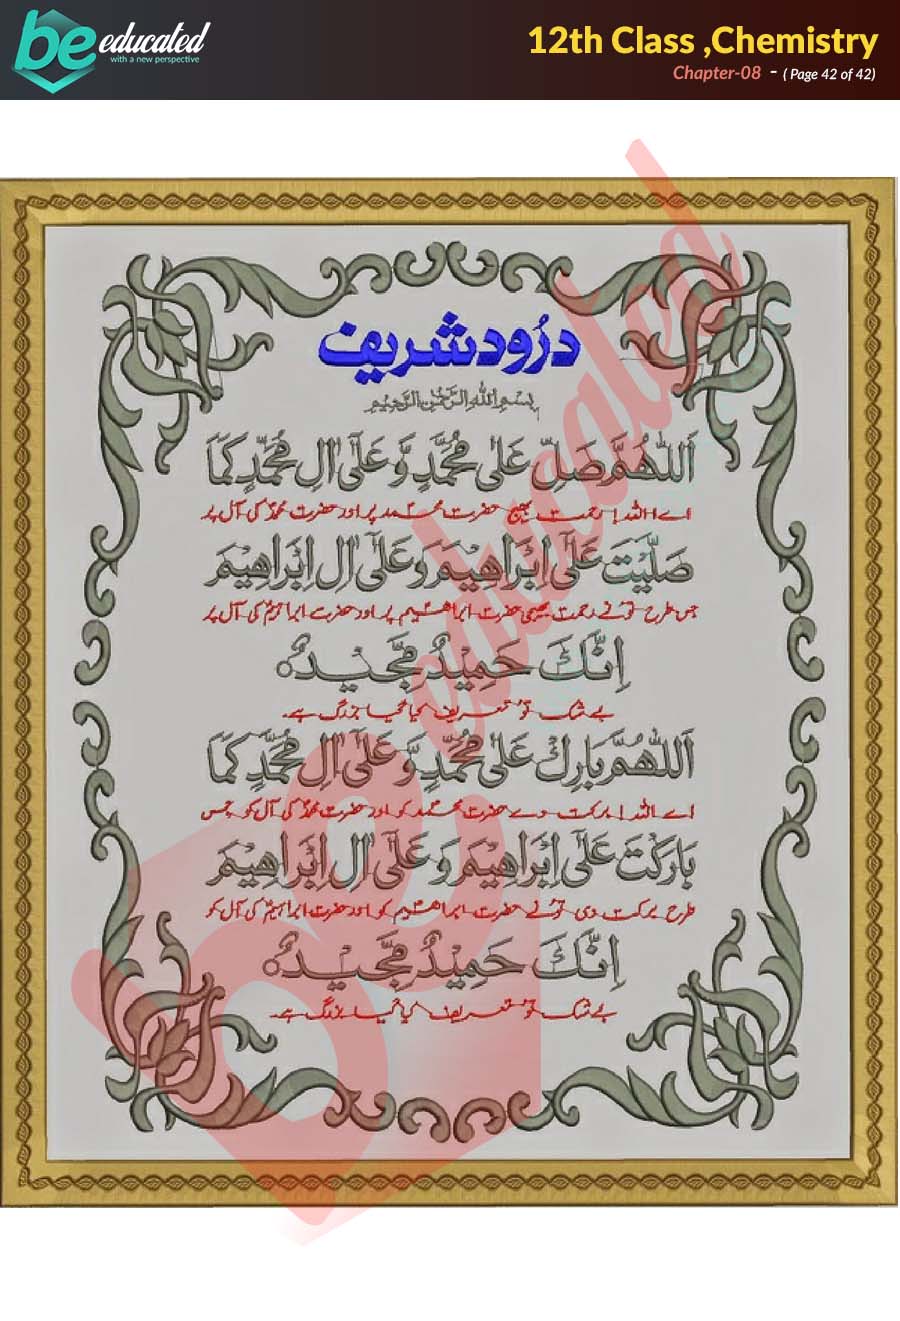 be educated
with a new perspective
12th Class ,Chemistry
Chapter-08 - ( Page 42 of 42)
درُود شریف
بِسْمِ اللهِ الرَّحْمٰنِ الرَّحِيْمِ
اَللّٰهُمَّ صَلِّ عَلٰى مُحَمَّدٍ وَّ عَلٰٓى اٰلِ مُحَمَّدٍ كَمَا
اے اللہ! رحمت بھیج حضرت محمد پر اور حضرت محمدؐ کی آل پر
صَلَّيْتَ عَلٰٓى اِبْرَاهِيْمَ وَ عَلٰٓى اٰلِ اِبْرَاهِيْمَ
جس طرح تو نے رحمت بھیجی حضرت ابراھیم پر اور حضرت ابراہیمؑ کی آل پر
اِنَّكَ حَمِيْدٌ مَّجِيْدٌ ه
بے شک تو تعریف کیا گیا بزرگ ہے۔
اَللّٰهُمَّ بَارِكْ عَلٰى مُحَمَّدٍ وَّ عَلٰٓى اٰلِ مُحَمَّدٍ كَمَا
اے اللہ! برکت دے حضرت محمد کو اور حضرت محمدؐ کی آل کو جس
بَارَكْتَ عَلٰٓى اِبْرَاهِيْمَ وَ عَلٰٓى اٰلِ اِبْرَاهِيْمَ
طرح برکت دی تو نے حضرت ابراھیم کو اور حضرت ابراہیمؑ کی آل کو
اِنَّكَ حَمِيْدٌ مَّجِيْدٌ ه
بے شک تو تعریف کیا گیا بزرگ ہے۔
be educated